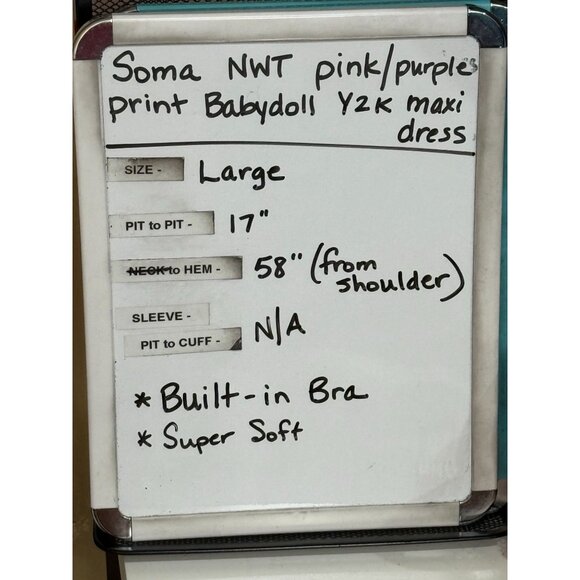 Soma NWT pink/purple
print Babydoll Y2K maxi
dress
SIZE - Large
PIT to PIT - 17"
NECK to HEM - 58" (from
shoulder)
SLEEVE -
PIT to CUFF - N/A
* Built-in Bra
* Super Soft